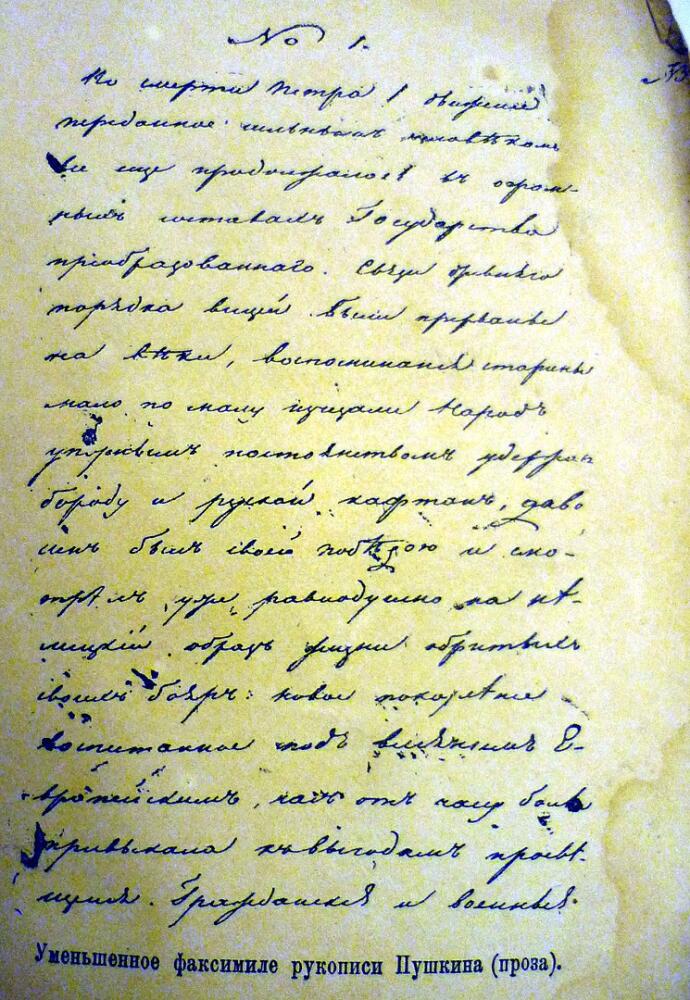 No 1.
По смерти Петра I движение
переданное сильнымъ человѣкомъ
все еще продолжалось въ огром-
ныхъ составахъ Государства
преобразованнаго. Связи древняго
порядка вещей были прерваны
на вѣки, воспоминанія старины
мало по малу изчезали Народъ
упорнымъ постоянствомъ удержав
бороду и русской кафтанъ, дово
ленъ былъ своей побѣдою и смо-
трѣлъ уже равнодушно на нѣ-
мецкій образъ жизни обритыхъ
своихъ бояръ: новое поколѣніе
воспитанное подъ вліяніемъ Е-
вропейскимъ, часъ отъ часу болѣе
привыкало къ выгодамъ просвѣ-
щенія. Гражданскія и военныя
Уменьшенное факсимиле рукописи Пушкина (проза).